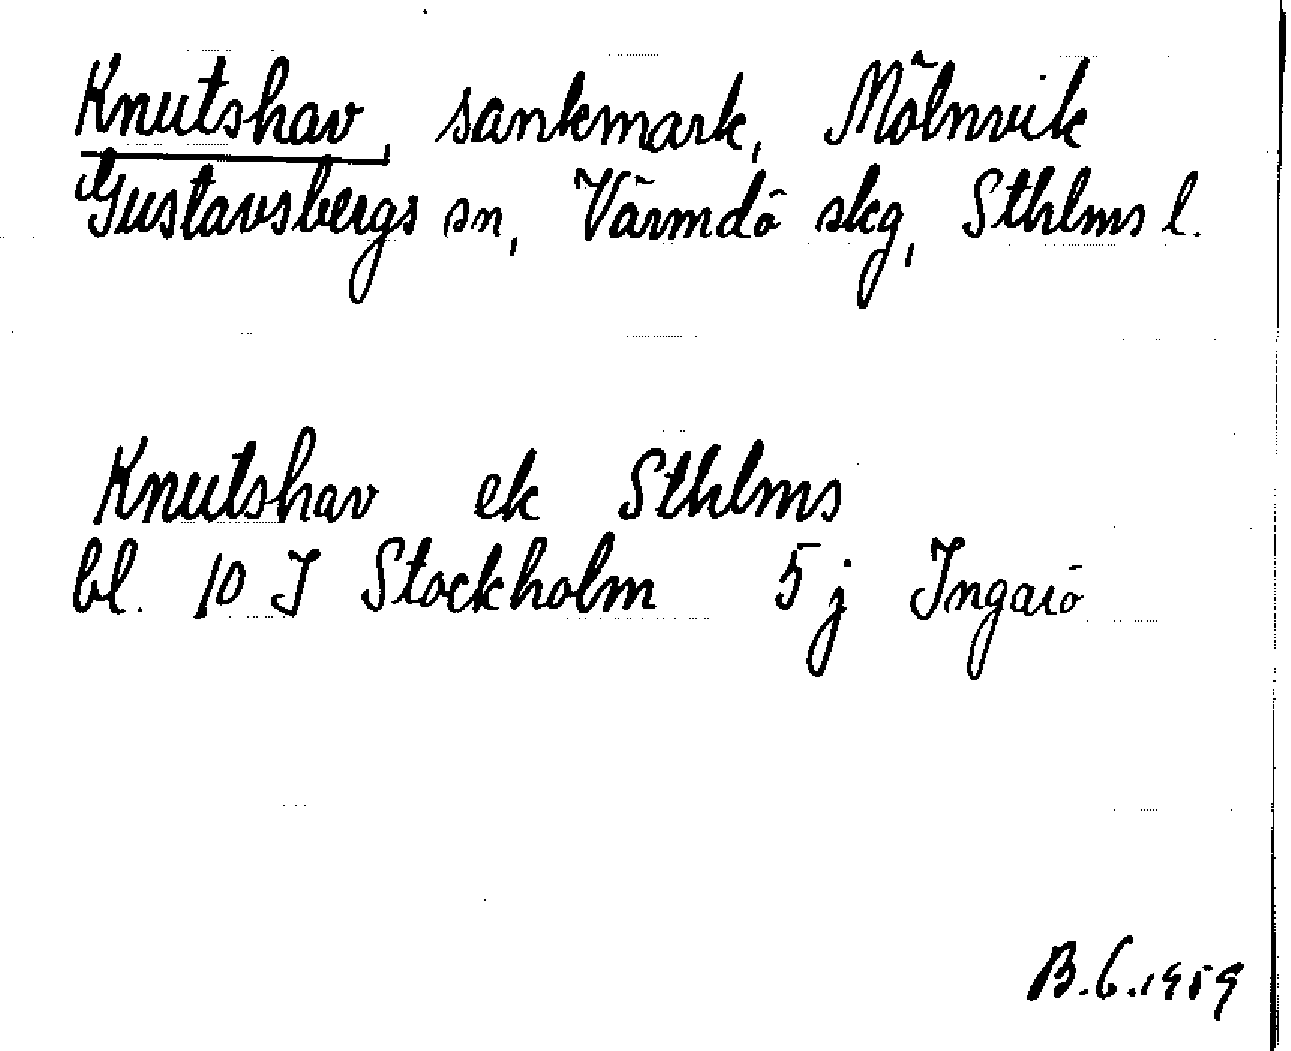 Knutshav, sankmark, Mölnvik
Gustavsbergs sn, Värmdö skg, Sthlms l.
Knutshav ek Sthlms
bl. 10 J Stockholm 5 j Ingarö
B.G.1959